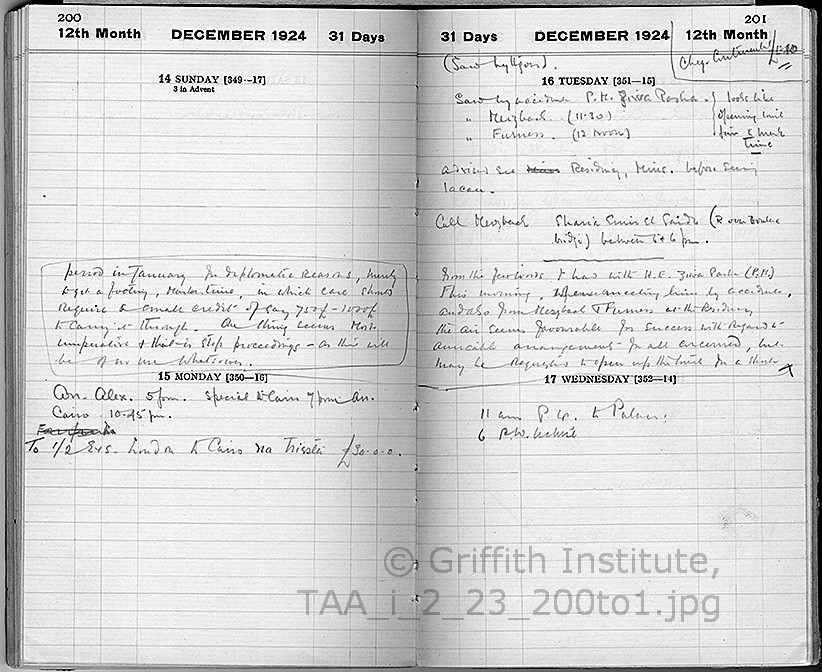 200
12th Month DECEMBER 1924 31 Days
14 SUNDAY [349--17]
3 in Advent
period in January for diplomatic reasons, merely
to get a footing, mark time, in which case should
require a small credit of say 750£ - 1000£
to carry it through. One thing seems most
imperative & that is stop proceedings - as this will
be of no use whatsoever.
15 MONDAY [350--16]
Arr. Alex. 5 pm. Special to Cairo 7 pm arr.
Cairo 10.45 pm.
To 1/2 Exs. London to Cairo via Trieste £30.0.0.
201
31 Days DECEMBER 1924 12th Month
(Saw).
Cheq.
16 TUESDAY [351--15]
Saw by accident P.M. Ziwa Pasha. } looks like
" Merzbach (11.30) opening tomb
" Furness. (12 Noon) for & mark
time
advised see Residency, Mins. before seeing
Lacau.
Call Merzbach Sharia Emir el Saïdi (R over Boulac
bridge) between 5 & 6 pm.
From the few words I had with H.E. Ziwa Pasha (P.M.)
this morning, meeting him by accident,
and also from Merzbach & Furness at the Residency
the air seems favourable for success with regard to
amicable arrangement for all concerned, but
may be requested to open up the tomb for a short
17 WEDNESDAY [352--14]
11 am P.W. to Palace.
6 P.W.
© Griffith Institute,
TAA_i_2_23_200to1.jpg